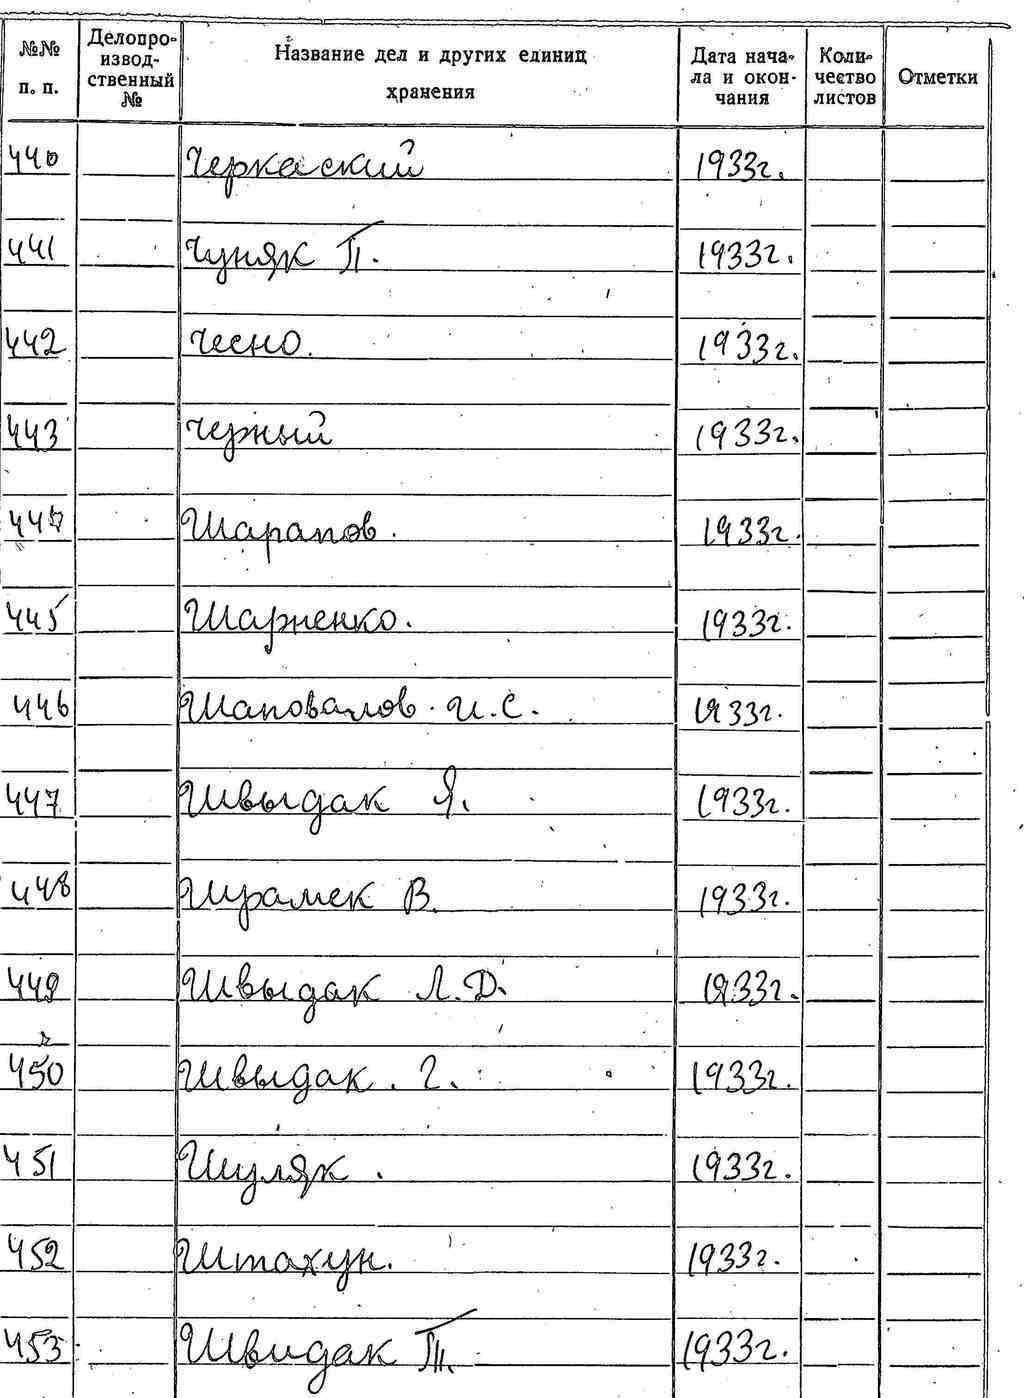 №№ п. п. Делопроизводственный № Название дел и других единиц хранения Дата начала и окончания Количество листов Отметки
440 Черкаский 1933г.
441 Чуняк П. 1933г.
442 Чесно. 1933г.
443 Черный 1933г.
444 Шарапов. 1933г.
445 1933г.
446 Шаповалов И.С. 1933г.
447 Швыдак Я. 1933г.
448 Шрамек В. 1933г.
449 Швыдак Л.Д. 1933г.
450 Швыдак. Г. 1933г.
451 Шуляк. 1933г.
452 Штахун. 1933г.
453 Швидак 1933г.